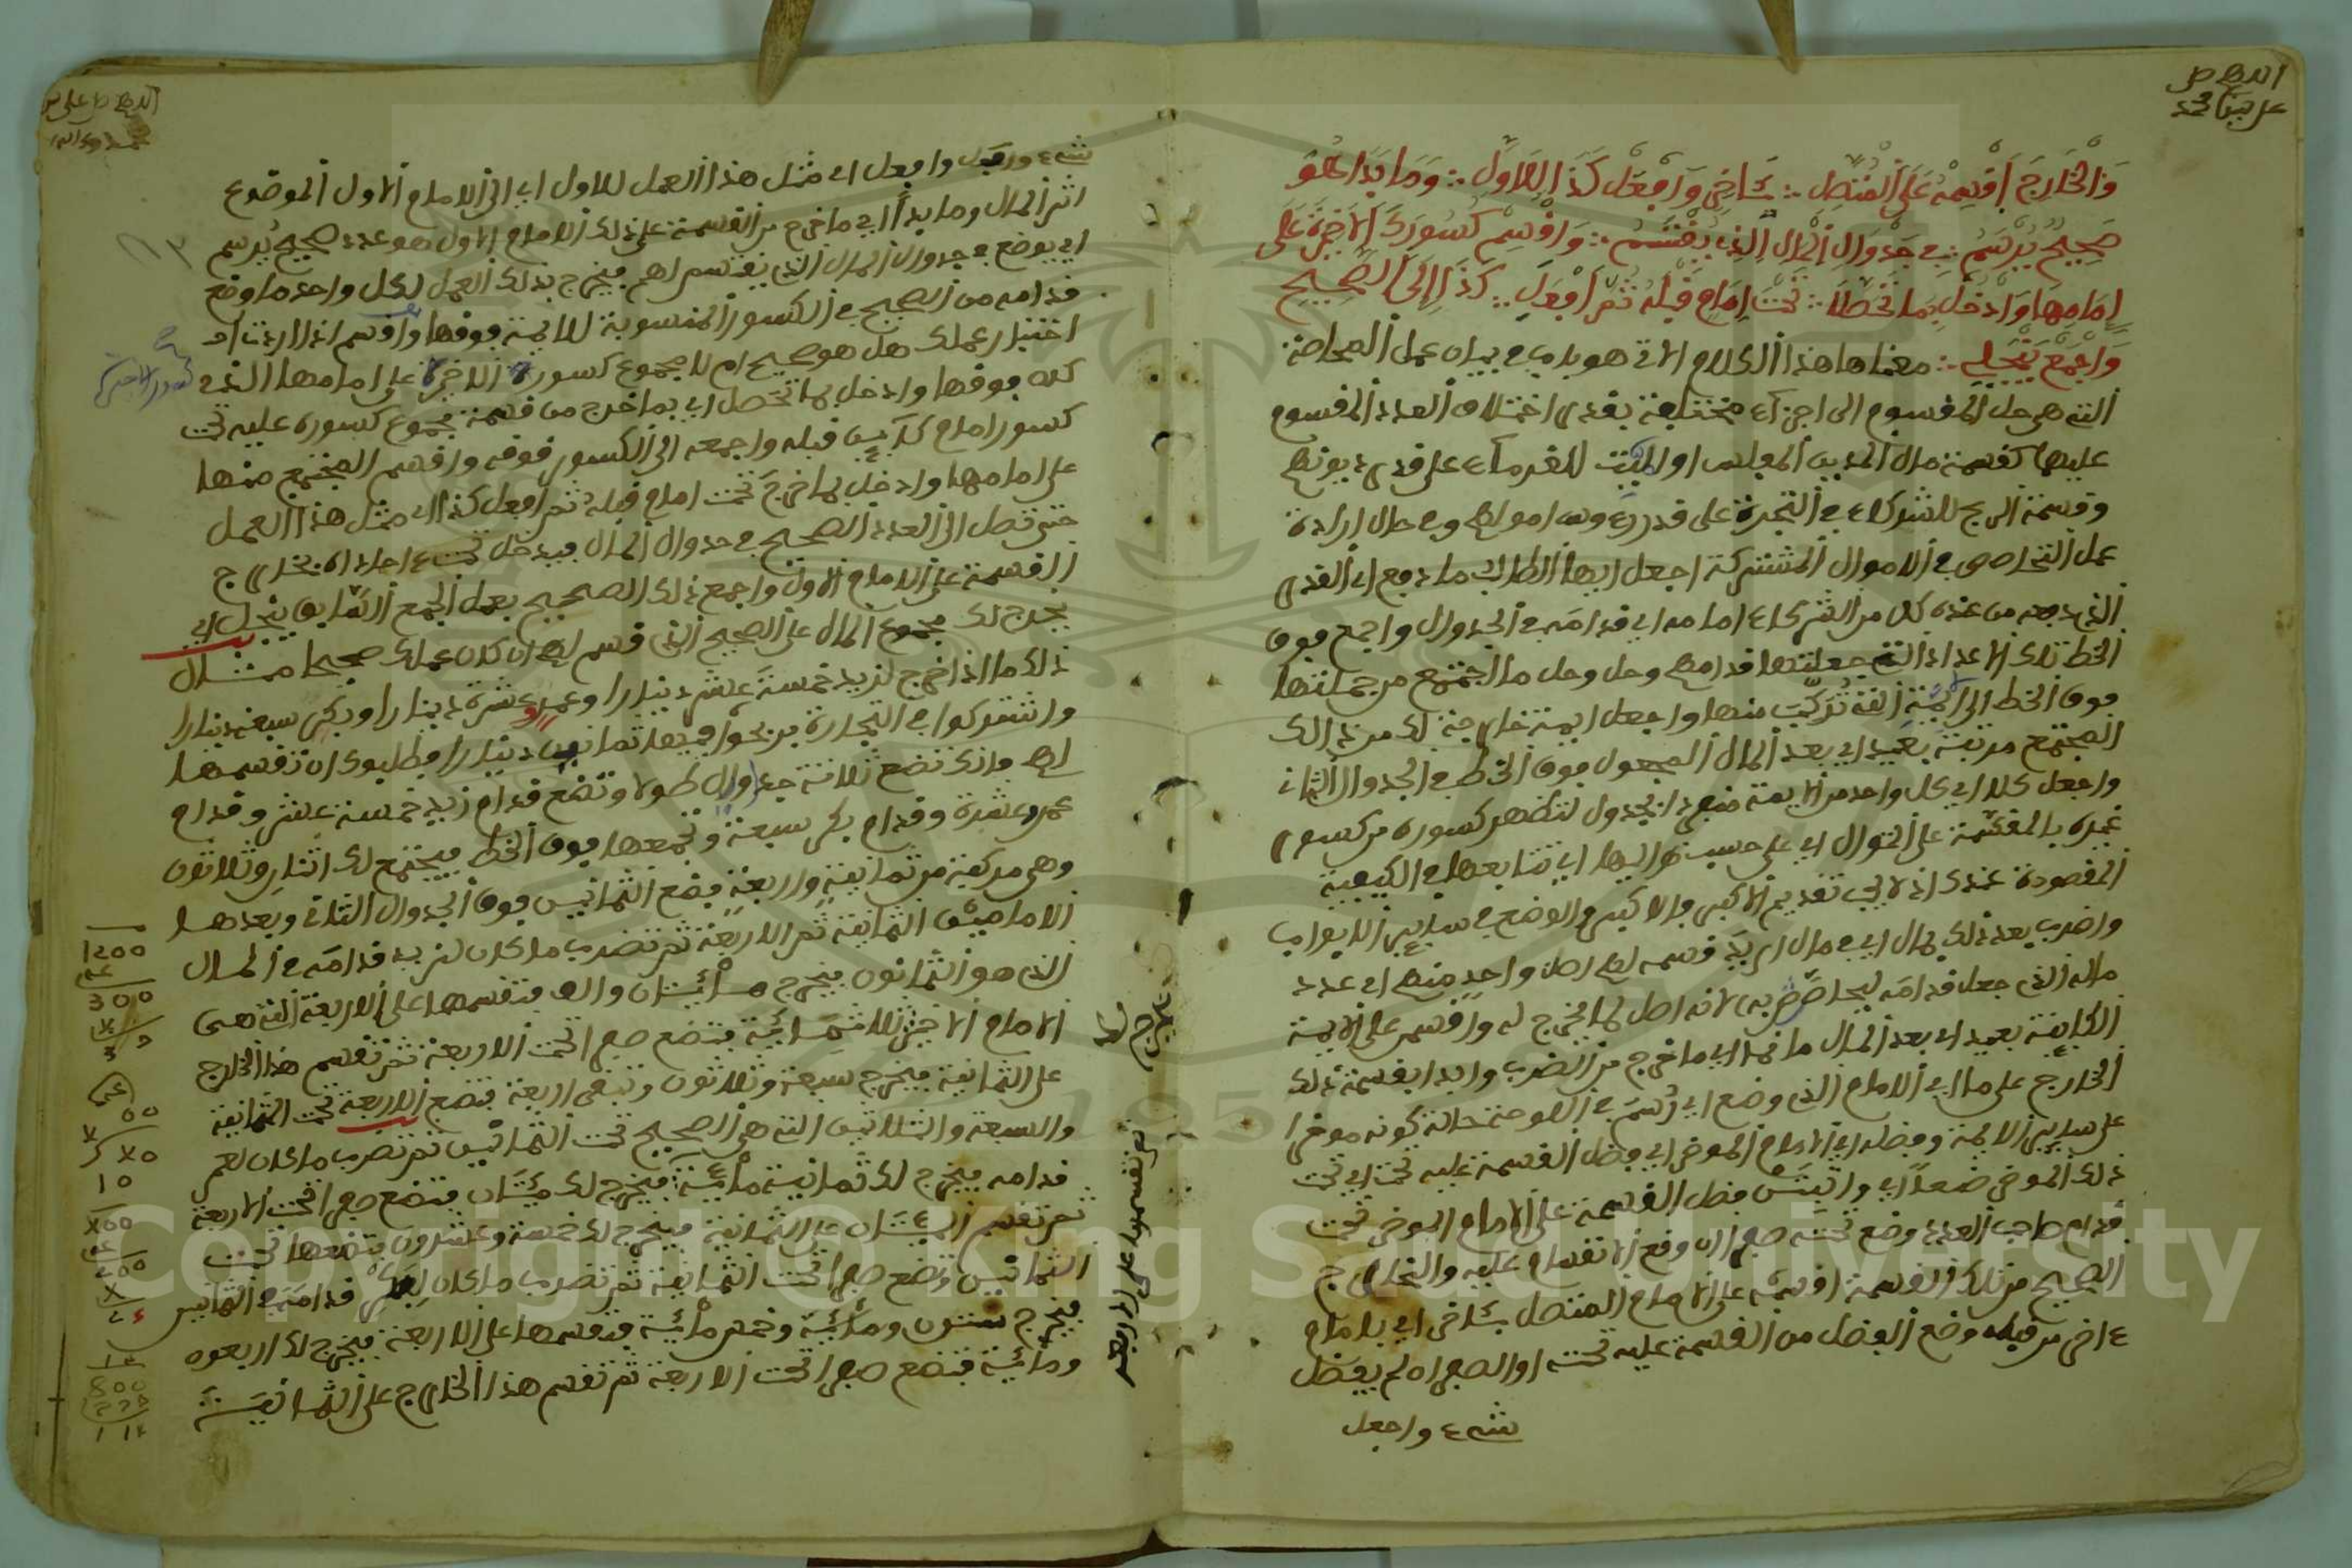 اللهم صل
على سيدنا محمد
وَالخَارِجَ اقْسِمْهُ عَلَى المُتَّصِلْ ∴ بِئَاخِرٍ وَافْعَلْ كَذَا لِلاَوَّلِ ∴ وَمَا بَدَا هُوَ
صَحِيحٌ يُرْسَمُ ∴ فِي جَدْوَلِ المَالِ الذِي يُقْتَسَمُ ∴ وَاقْسِمْ كُسُورَكَ الاَخِيرَةَ عَلَى
اِمَامِهَا وَادْخُلْ بِمَا تَحَصَّلاَ ∴ تَحْتَ اِمَامٍ قَبْلَهُ ثُمَّ افْعَلِ ∴ كَذَا اِلَى الصَّحِيحِ
وَاجْمَعْ يَنْجَلِي ∴ معناها هذا الكلام الاتي هو باب في بيان عمل المحاصة
التي هي حل المقسوم الى اجزاء مختلفة بقدر اختلاف العدد المقسوم
عليها كقسمة مال المدين المفلس او الميت للغرماء على قدر ديونهم
وقسمة الربح للشركاء في التجرة على قدر رءوس اموالهم وفي حال ارادة
عمل التحاصص في الاموال المشتركة اجعل ايها الطالب ما دفع اي القدر
الذي دفعه من عنده كل من الشركاء امامه اي قدامه في الجدول واجمع فوق
الخط تلك الاعداد التي جعلتها قدامهم وحل وحل ما اجتمع من جملتها
فوق الخط الى ائمة التي تركبت منها واجعل ايمة خارجة لك من ذالك
المجتمع مرتبة بعيد اي بعد المال المجعول فوق الخط في الجدول الثاني
واجعل كلا اي كل واحد من الايمة منفردا بجدول لتظهر كسوره من كسور
غيره بالمقسمة على التوال اي على حسب تواليها اي تتابعها في الكيفية
المقصودة عندك اذ لا يجب تقديم الاكبر فالاكبر والوضع في ساير الابواب
واضرب بعد ذلك بمال اي في مال اريد قسمه لهم اصل واحد منهم اي عدد
ماله الذي جعل قدامه ليحاصص به لانه اصل لما يخرج له واقسم على الايمة
الكاينة بعيد اي بعد المال ما نما اي ما خرج من الضرب وابدا بقسمة ذلك
الخارج على ما اي الامام الذي وضع اي رسم في اللوحة حالة كونه موخرا
على ساير الايمة وفضله اي الامام الموخر اي فضل القسمة عليه تحت اي تحت
ذلك الموخر ضعا اي واثبتن فضل القسمة على الامام الموخر تحت
قدام صاحب العدد وضع تحته صفرا ان وقع الانقسام عليه والخارج
الصحيح من تلك القسمة اقسمه على الامام المتصل بئاخر اي بامام
ءاخر من قبله وضع الفضل من القسمة عليه تحته او الصفر ان لم يفضل
شيء وافعل
اللهم صل على
شيء ورقبل وافعل اي مثل هذا العمل للاول اي الى الامام الاول الموضوع
اثر المال وما بدأ اي ما خرج من القسمة على ذلك الامام الاول هو عدد صحيح يرسم
اي يوضع في جدول المال الذي يقتسم لهم فيخرج بذلك العمل لكل واحد ما وقع
قدامه من الصحيح في الكسور المنسوبة للايمة فوقها واقسم اذا اردت
اختبار عملك هل هو صحيح ام لا مجموع كسورك الاخيرة على امامها الذي
كان فوقها وادخل بما تحصل اي بما خرج من قسمة مجموع كسوره عليه تحت
كسور امام كاين قبله واجمعه الى الكسور فوقه واقسم المجتمع منها
على امامها وادخل بما خرج تحت امام قبله ثم افعل كذا اي مثل هذا العمل
حتى تصل الى العدد الصحيح في جدول المال فيدخل تحت ءاحاده بخارج
القسمة على الامام الاول واجمع ذلك الصحيح بعمل الجمع السابق ينجل اي
يخرج لك مجموع المال على الصحيح الذي قسم لهم ان كان عملك صحيحا مثال
ذلك ما اذا اخرج لزيد خمسة عشر دينارا وعمر عشرة دينارا وبكر سبعة دينارا
واشتركوا في التجارة فربحوا فيها ثمانين دينارا فطلبوك ان تقسمها
لهم فانك تضع ثلاثة جداول طولا وتضع قدام زيد خمسة عشر وقدام
عمر عشرة وقدام بكر سبعة وتجمعها فوق الخط فيجتمع لك اثنان وثلاثون
وهي مركبة من ثمانية واربعة فضع الثمانين فوق الجدول الثاني وبعدها
الامامين الثمانية ثم الاربعة ثم تضرب ما كان لزيد قدامه في المال
الذي هو الثمانون فيخرج مائتان والف فتقسمها على الاربعة التي هي
الامام الاخير ثلاثمائة فتضع صفرا تحت الاربعة ثم تقسم هذا الخارج
على الثمانية فيخرج سبعة وثلاثون وتبقى اربعة فتضع الاربعة تحت الثمانية
والسبعة والثلاثين التي هي الصحيح تحت الثمانين ثم تضرب ما كان لعمر
قدامه فيخرج لك ثمانية مائة فيخرج لك مئتان فتضع صفرا تحت الاربعة
ثم تقسم المئتان على الثمانية فيخرج لك خمسة وعشرون فتضعها تحت
الثمانين وتضع صفرا تحت الثمانية ثم تضرب ما كان لبكر قدامه في الثمانين
فيخرج ستون ومائة وخمس مائة فتقسمها على الاربعة فيخرج لك اربعون
ومائة فتضع صفرا تحت الاربعة ثم تقسم هذا الخارج على الثمانية
ثم تقسمها على الاربعة
يخرج لك
1200
300
Copyright © King Saud University
1957